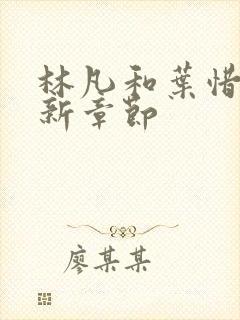 林凡和葉惜
新章節
廖某某